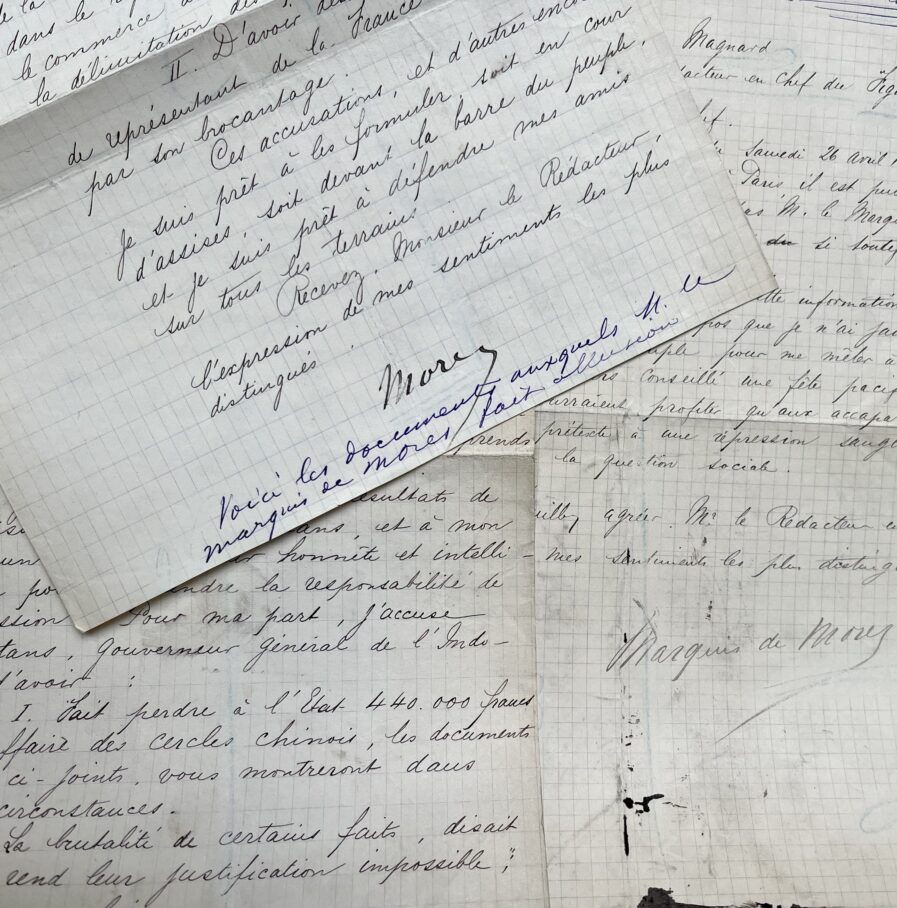 de la
dans le
le commerce
la délimitation des
II. D'avoir
de représentant de la France
par son brocantage.
Ces accusations, et d'autres encore
Je suis prêt à les formuler, soit en cour
d'assises, soit devant la barre du peuple,
et je suis prêt à défendre mes amis
sur tous les terrains.
Recevez, Monsieur le Rédacteur,
l'expression de mes sentiments les plus
distingués.
Morès
Voici les documents auxquels M. le
marquis de Morès fait allusion
Magnard
acteur en chef du Figa
samedi 26 avril,
à Paris il est
M. le Marq
si toute
tte information
pos que je n'ai ja
uple pour me mêler a
rs conseillé une fête paci
urraient profiter qu'aux accapa
prétexte à une répression sangl
la question sociale.
uillez agréer, Mr le Rédacteur e
mes sentiments les plus disting
Marquis de Morès
prends
ésultats de
ans, et à mon
un honnête et intelli-
po endre la responsabilité de
ssion Pour ma part, j'accuse
tans, gouverneur général de l'Indo-
d'avoir :
I. Fait perdre à l'État 440.000 francs
ffaire des cercles chinois, les documents
ci-joints, vous montreront dans
circonstances.
La brutalité de certains faits, disait
rend leur justification impossible";